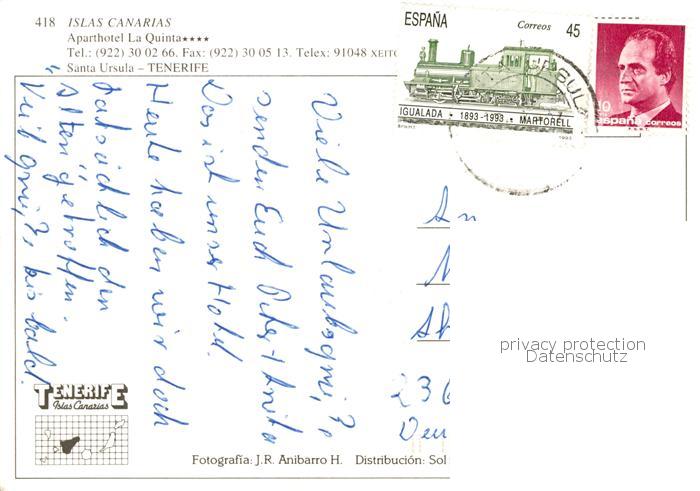 418 ISLAS CANARIAS
Aparthotel La Quinta★★★★
Tel.: (922) 30 02 66. Fax: (922) 30 05 13. Telex: 91048 XEITO
Santa Ursula – TENERIFE
ESPAÑA
Correos 45
IGUALADA • 1893-1993 • MARTORELL
1993
10
españa correos
URSULA
Viele Urlaubsgrüße
senden Euch Peter + Anita
Das ist unser Hotel.
Heute haben wir doch
tatsächlich den
"Alten" getroffen.
Viel Grüße bis bald!
An
236
Deu
privacy protection
Datenschutz
TENERIFE
Islas Canarias
Fotografía: J.R. Anibarro H. Distribución: Sol